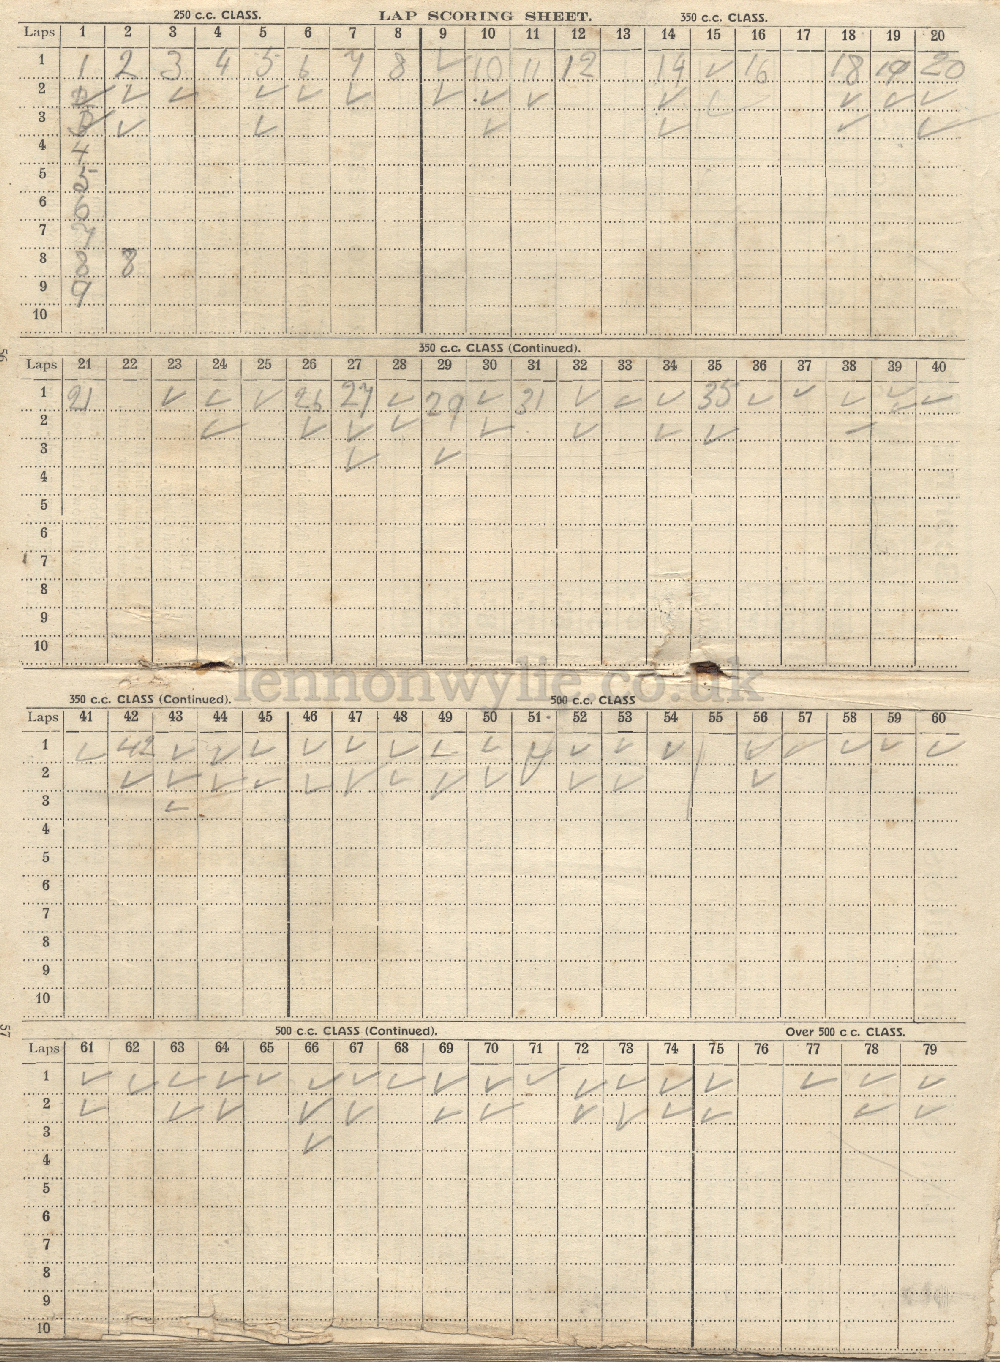 250 c.c. CLASS. LAP SCORING SHEET. 350 c.c. CLASS.
Laps 1 2 3 4 5 6 7 8 9 10 11 12 13 14 15 16 17 18 19 20
1 1 2 3 4 5 6 7 8 ✓ 10 11 12 14 ✓ 16 18 19 20
2 ✓ ✓ ✓ ✓ ✓ ✓ ✓ ✓ ✓ ✓ ✓ ✓ ✓
3 ✓ ✓ ✓ ✓ ✓ ✓ ✓
4 4
5 5
6 6
7 7
8 8 8
9 9
10
56
350 c.c. CLASS (Continued).
Laps 21 22 23 24 25 26 27 28 29 30 31 32 33 34 35 36 37 38 39 40
1 21 ✓ ✓ ✓ 26 27 ✓ 29 ✓ 31 ✓ ✓ ✓ 35 ✓ ✓ ✓ ✓ ✓
2 ✓ ✓ ✓ ✓ ✓ ✓ ✓ ✓ ✓
3 ✓ ✓
4
5
6
7
8
9
10
lennonwylie.co.uk
350 c.c. CLASS (Continued). 500 c.c. CLASS
Laps 41 42 43 44 45 46 47 48 49 50 51 52 53 54 55 56 57 58 59 60
1 ✓ 42 ✓ ✓ ✓ ✓ ✓ ✓ ✓ ✓ ✓ ✓ ✓ ✓ ✓ ✓ ✓ ✓ ✓
2 ✓ ✓ ✓ ✓ ✓ ✓ ✓ ✓ ✓ ✓ ✓ ✓
3 ✓
4
5
6
7
8
9
10
57
500 c.c. CLASS (Continued). Over 500 c.c. CLASS.
Laps 61 62 63 64 65 66 67 68 69 70 71 72 73 74 75 76 77 78 79
1 ✓ ✓ ✓ ✓ ✓ ✓ ✓ ✓ ✓ ✓ ✓ ✓ ✓ ✓ ✓ ✓ ✓ ✓
2 ✓ ✓ ✓ ✓ ✓ ✓ ✓ ✓ ✓ ✓ ✓ ✓ ✓
3 ✓
4
5
6
7
8
9
10